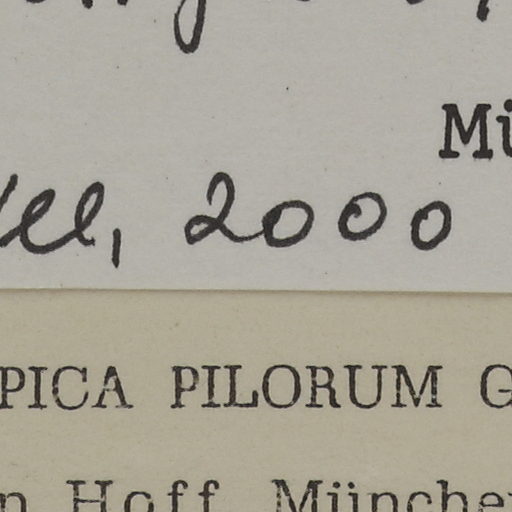 Mü
ll, 2000
PICA PILORUM G
n Hoff, Münche